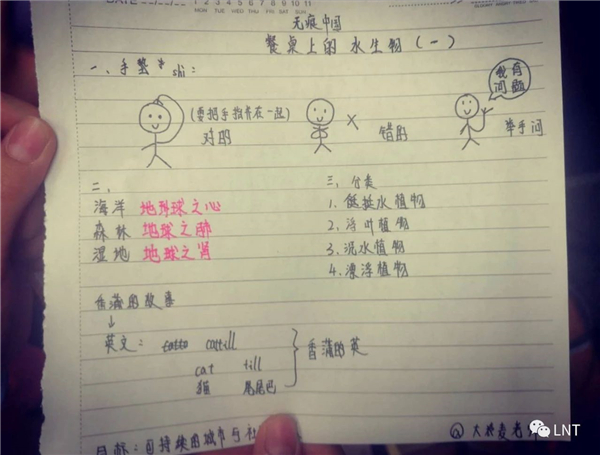 DATE
1 2 3 4 5 6 7 8 9 10 11
MON TUE WED THU FRI SAT SUN
无痕中国
餐桌上的水生物(一)
一、手势 shi:
(要把手指并在一起)
对的
错的
我有问题
举手问
二、
海洋 地球之心
森林 地球之肺
湿地 地球之肾
三、分类
1.挺水植物
2.浮叶植物
3.沉水植物
4.漂浮植物
香蒲的故事
↓
英文: cattill
cat till
猫 尾巴
香蒲的英
目标:可持续的城市与社
LNT